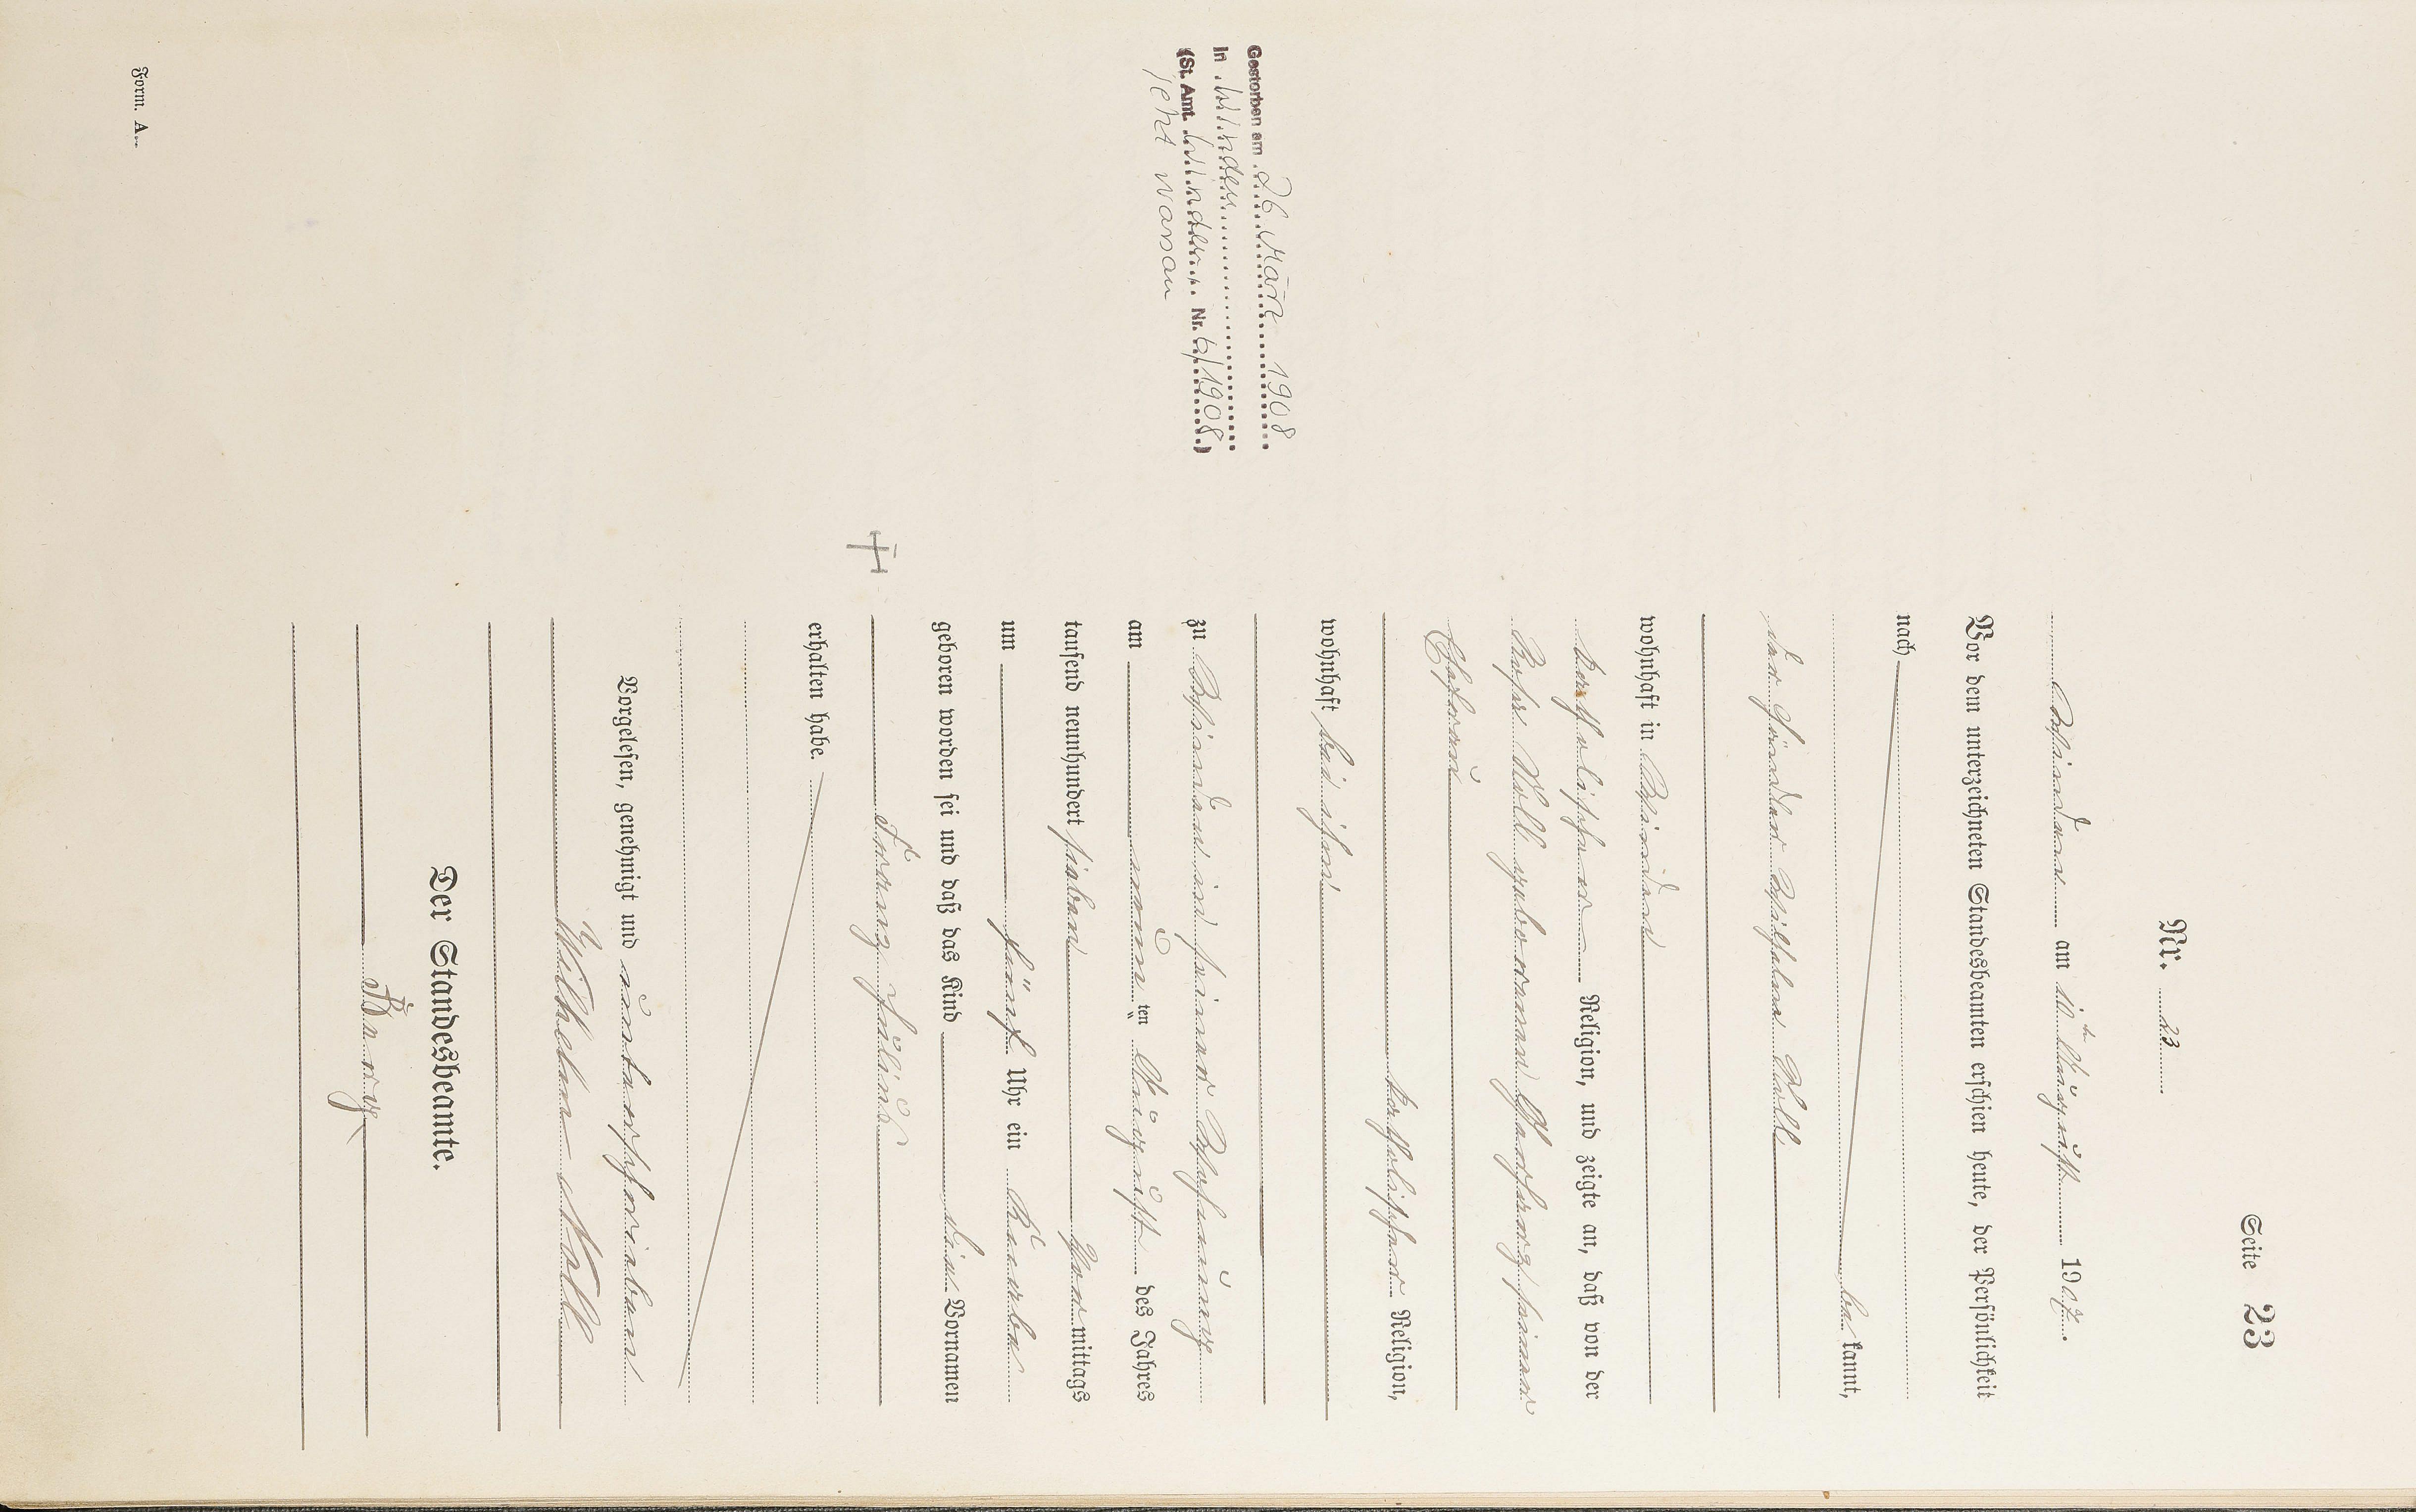 Seite 23
Nr. 23
Winden am 10ten August 1907.
Vor dem unterzeichneten Standesbeamten erschien heute, der Persönlichkeit
nach
be kannt,
der Händler Wilhelm Noll
wohnhaft in Winden
katholischer Religion, und zeigte an, daß von der
Rosa Noll geborenen seiner
Ehefrau
katholischer Religion,
wohnhaft bei ihm
zu Winden in seiner Wohnung
am neun ten August des Jahres
tausend neunhundert sieben Vor mittags
um fünf Uhr ein Knabe
geboren worden sei und daß das Kind die Vornamen
Franz Julius
erhalten habe.
Vorgelesen, genehmigt und unterschrieben
Wilhelm Noll
Der Standesbeamte.
Gestorben am 26. März 1908
in Winden
(St. Amt. Winden Nr. 6/1908)
jetzt Nassau
Form. A.